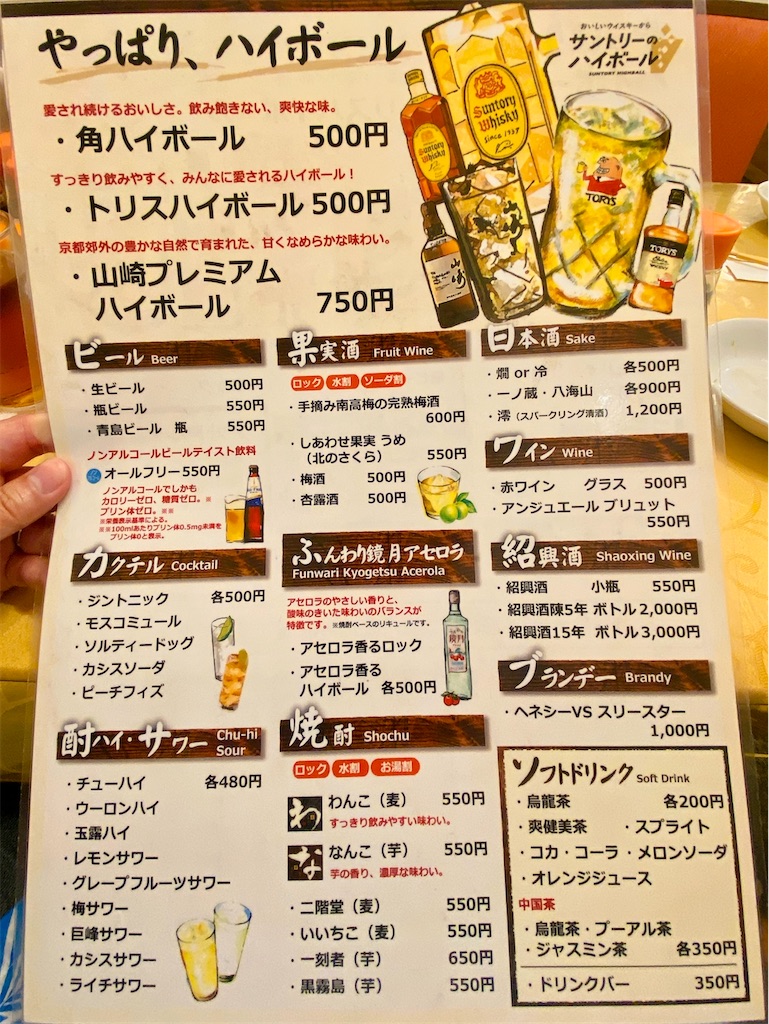 やっぱり、ハイボール
おいしいウイスキーから
サントリーの
ハイボール
SUNTORY HIGHBALL
愛され続けるおいしさ。飲み飽きない、爽快な味。
・角ハイボール 500円
すっきり飲みやすく、みんなに愛されるハイボール！
・トリスハイボール 500円
京都郊外の豊かな自然で育まれた、甘くなめらかな味わい。
・山崎プレミアム
ハイボール 750円
Suntory
Whisky
since 1937
Suntory
Whisky
山崎
山崎
TORYS
TORYS
ビール Beer
・生ビール 500円
・瓶ビール 550円
・青島ビール 瓶 550円
ノンアルコールビールテイスト飲料
オールフリー 550円
ノンアルコールでしかも
カロリーゼロ、糖質ゼロ。※
プリン体ゼロ。※※
※栄養表示基準による。
※※100mlあたりプリン体0.5mg未満を
プリン体0と表示。
カクテル Cocktail
・ジントニック 各500円
・モスコミュール
・ソルティードッグ
・カシスソーダ
・ピーチフィズ
酎ハイ・サワー Chu-hi
Sour
・チューハイ 各480円
・ウーロンハイ
・玉露ハイ
・レモンサワー
・グレープフルーツサワー
・梅サワー
・巨峰サワー
・カシスサワー
・ライチサワー
果実酒 Fruit Wine
ロック 水割 ソーダ割
・手摘み南高梅の完熟梅酒
600円
・しあわせ果実 うめ
（北のさくら） 550円
・梅酒 500円
・杏露酒 500円
ふんわり鏡月アセロラ
Funwari Kyogetsu Acerola
アセロラのやさしい香りと、
酸味のきいた味わいのバランスが
特徴です。※焼酎ベースのリキュールです。
・アセロラ香るロック
・アセロラ香る
ハイボール 各500円
鏡月
焼酎 Shochu
ロック 水割 お湯割
わ わんこ（麦） 550円
すっきり飲みやすい味わい。
な なんこ（芋） 550円
芋の香り、濃厚な味わい。
・二階堂（麦） 550円
・いいちこ（麦） 550円
・一刻者（芋） 650円
・黒霧島（芋） 550円
日本酒 Sake
・燗 or 冷 各500円
・一ノ蔵・八海山 各900円
・澪（スパークリング清酒） 1,200円
ワイン Wine
・赤ワイン グラス 500円
・アンジュエール ブリュット
550円
紹興酒 Shaoxing Wine
・紹興酒 小瓶 550円
・紹興酒陳5年 ボトル 2,000円
・紹興酒15年 ボトル 3,000円
ブランデー Brandy
・ヘネシーVS スリースター
1,000円
ソフトドリンク Soft Drink
・烏龍茶 各200円
・爽健美茶 ・スプライト
・コカ・コーラ ・メロンソーダ
・オレンジジュース
中国茶
・烏龍茶・プーアル茶
・ジャスミン茶 各350円
・ドリンクバー 350円